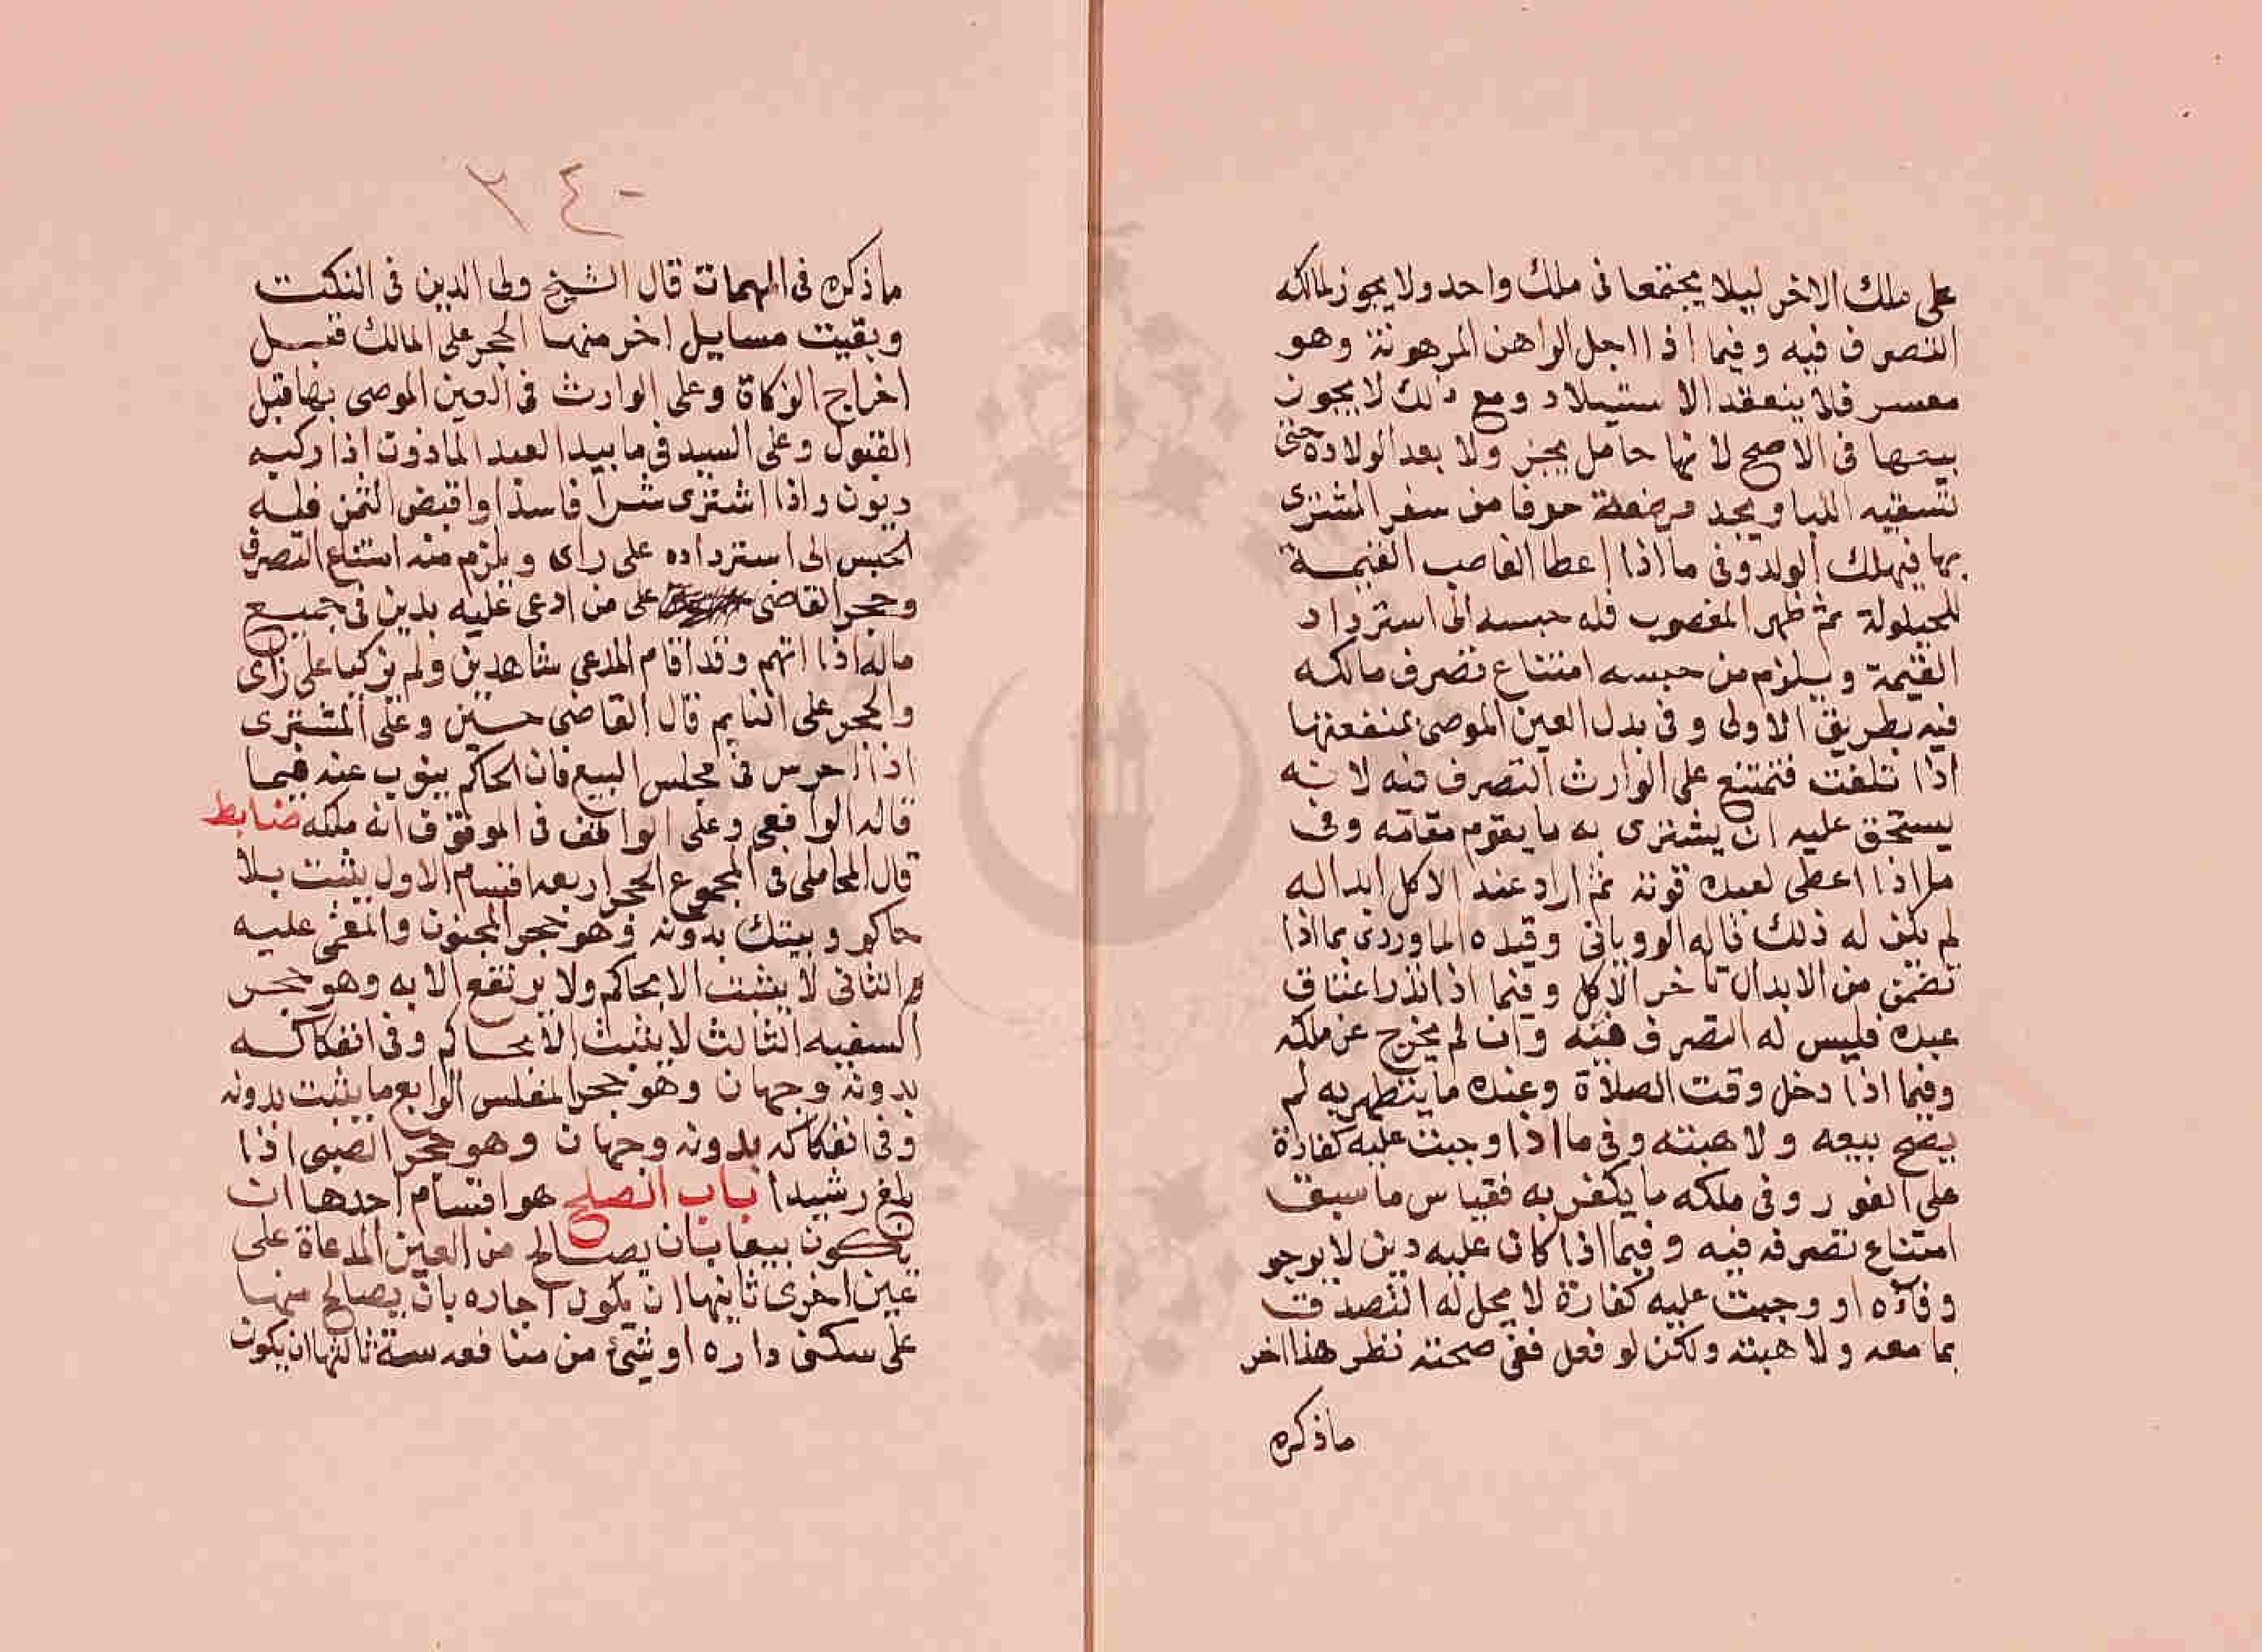 على ملك الاخر ليلا يجتمعا فى ملك واحد ولا يجوز لمالكه
التصرف فيه وفيما اذا احبل الراهن المرهونة وهو
معسر فلا ينعقد الاستيلاد ومع ذلك لا يجوز
بيعها فى الاصح لانها حامل بحر ولا بعد الولادة حتى
تسقيه اللبا ويجد مرضعة خوفا من سفر المشترى
بها فيهلك الولد وفى ما اذا اعطا الغاصب القيمة
للحيلولة ثم ظهر المغصوب فله حبسه الى استرداد
القيمة ويلزم من حبسه امتناع تصرف مالكه
فيه بطريق الاولى وفى بدل العين الموصى بمنفعتها
اذا تلفت فتمتنع على الوارث التصرف فيه لانه
يستحق عليه ان يشترى به ما يقوم مقامه وفى
ما اذا اعطى لعبده قوته ثم اراد عند الاكل ابداله
لم يكن له ذلك قاله الرويانى وقيده الماوردى بما اذا
تضمن من الابدال تاخر الاكل وفيما اذا نذر اعتاق
عبده فليس له التصرف فيه وان لم يخرج عن ملكه
وفيما اذا دخل وقت الصلاة وعنده ما يتطهر به لم
يصح بيعه ولا هبته وفى ما اذا وجبت عليه كفارة
على الفور وفى ملكه ما يكفر به فقياس ما سبق
امتناع تصرفه فيه وفيما اذا كان عليه دين لا يرجو
وفآه او وجبت عليه كفارة لا يحل له التصدق
بما معه ولا هبته ولكن لو فعل ففى صحته نظر هذا اخر
ماذكره
٢٤٠
ماذكره فى المهمات قال الشيخ ولى الدين فى النكت
وبقيت مسايل اخر منها الحجر على المالك قبل
اخراج الزكاة وعلى الوارث فى العين الموصى بها قبل
القبول وعلى السيد فى ما بيد العبد الماذون اذا ركبه
ديون واذا اشترى شرآ فاسدا واقبض الثمن فله
الحبس الى استرداده على راى ويلزم منه امتناع التصرف
وحجر القاضى على من ادعى عليه بدين فى جميع
ماله اذا اتهم وقد اقام المدعى شاهدين ولم يزكيا على راى
والحجر على النايم قال القاضى حسين وعلى المشترى
اذا خرس فى مجلس البيع فان الحاكم ينوب عنه فيما
قاله الرافعى وعلى الواقف فى الموقوف انه ملكه ضابط
قال المحاملى فى المجموع الحجر اربعه اقسام الاول يثبت بلا
حاكم وبيتك بدونه وهو حجر المجنون والمغمى عليه
والثانى لا يثبت الا بحاكم ولا يرتفع الا به وهو حجر
السفيه الثالث لا يثبت الا بحاكم وفى انفكاكه
بدونه وجهان وهو حجر المفلس الرابع ما يثبت بدونه
وفى انفكاكه بدونه وجهان وهو حجر الصبى اذا
بلغ رشيدا باب الصلح هو اقسام احدها ان
يكون بيعا بان يصالح من العين المدعاة على
عين اخرى ثانيها ان يكون اجاره بان يصالح منها
على سكنى داره او شئ من منافعه سنة ثالثها ان يكون